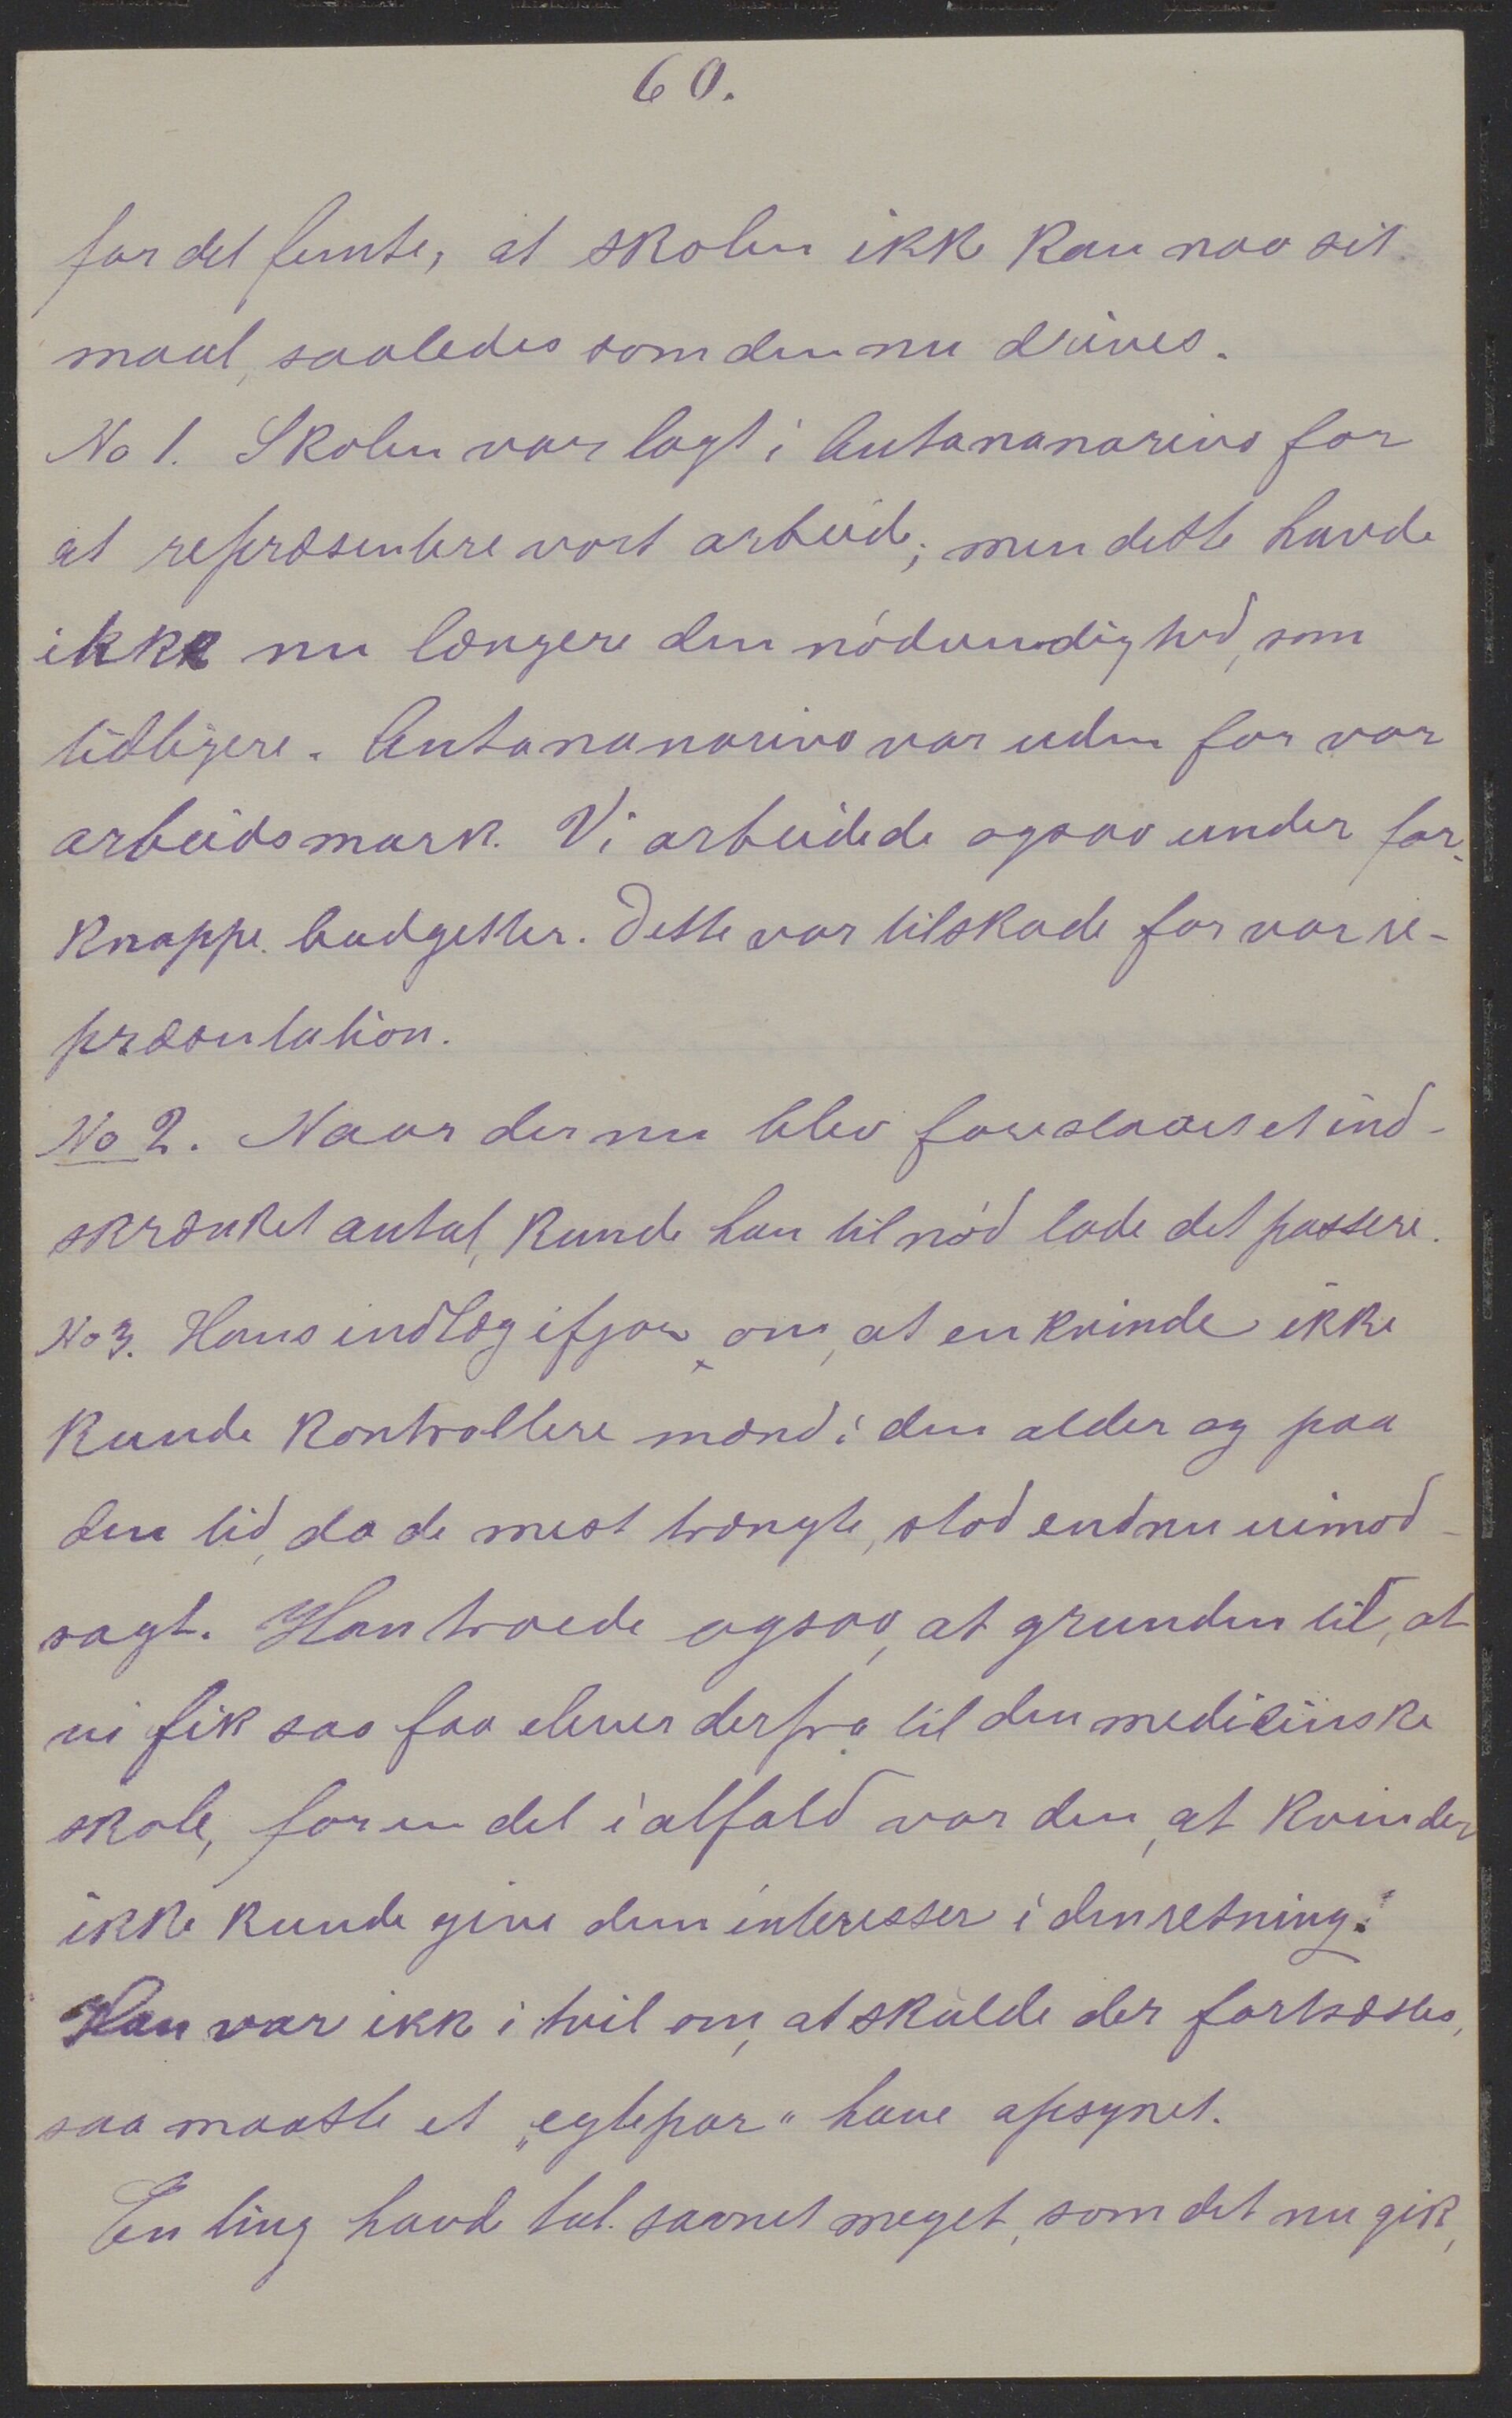 60.
for det femte, at skolen ikke kan naa sit
maal, saaledes som den nu drives.
No 1. Skolen var lagt i Antananarivo for
at repræsentere vort arbeid; men dette havde
ikke nu længere den nødvendighed, som
tidligere. Antananarivo var uden for vor
arbeidsmark. Vi arbeidede ogsaa under for
knappe budgetter. Dette var tilskade for vor re-
præsentation.
No 2. Naar der nu blev foreslaaet et ind-
skrænket antal, kunde han til nød lade det passere.
No 3. Hans indlæg ifjor om, at en kvinde ikke
kunde kontrollere mænd i den alder og paa
den tid, da de mest trængte, stod endnu uimod-
sagt. Han troede ogsaa, at grunden til, at
vi fik saa faa elever derfra til den medicinske
skole, for en del ialfald var den, at kvinder
ikke kunde give dem interesser i den retning.
Han var ikke i tvil om, at skulde der fortsættes,
saa maatte et „egtepar" have opsynet.
En ting havde tal. savnet meget, som det nu gik,